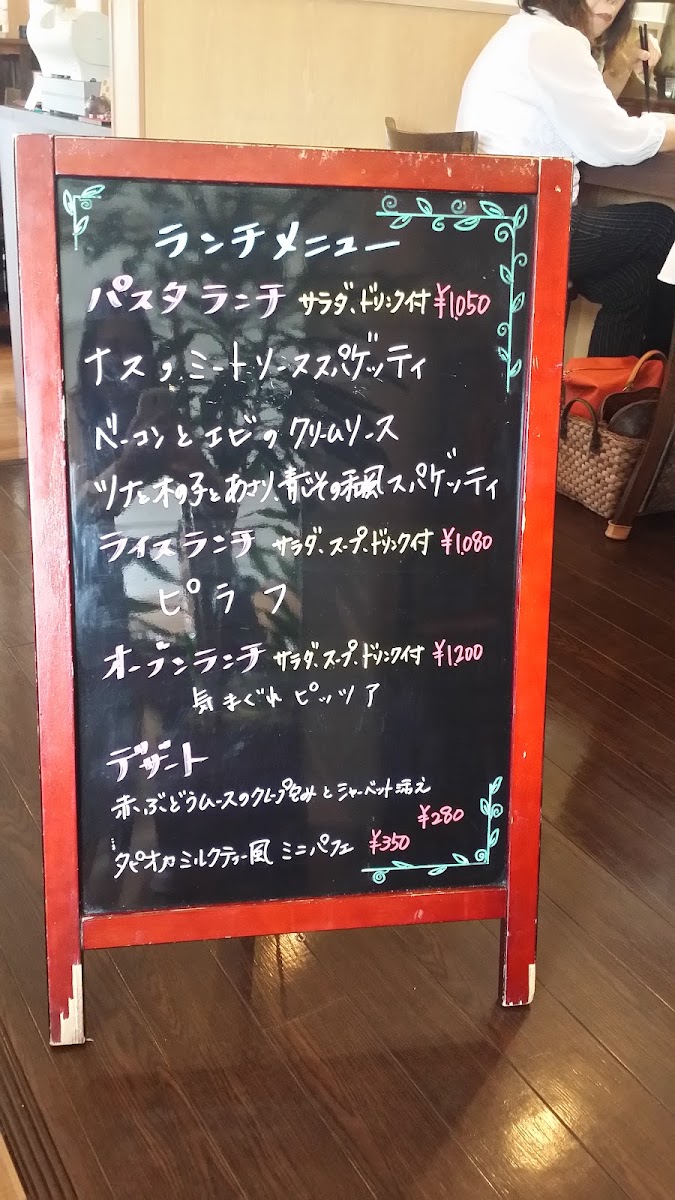 ランチメニュー
パスタランチ サラダ、ドリンク付 ¥1,050
ナスのミートソーススパゲッティ
ベーコンとエビのクリームソース
ツナと木の子とあさり、青じその和風スパゲッティ
ライスランチ サラダ、スープ、ドリンク付 ¥1,080
ピラフ
オーブンランチ サラダ、スープ、ドリンク付 ¥1,200
気まぐれピッツァ
デザート
赤ぶどうムースのクレープ包みとシャーベット添え
¥280
タピオカミルクティー風ミニパフェ ¥350